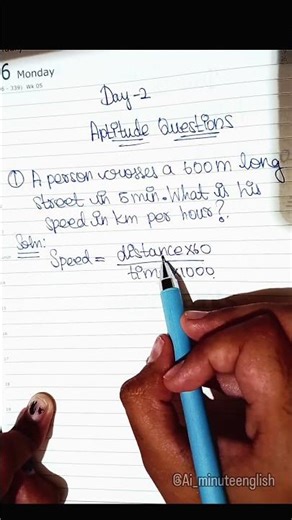 6 Monday
339) Wk 05
Day-2
Aptitude Questions
① A person crosses a 600m long
street in 5 min. What is his
speed in km per hour?
Soln:
Speed = distance×60
time×1000
@Ai_minuteenglish